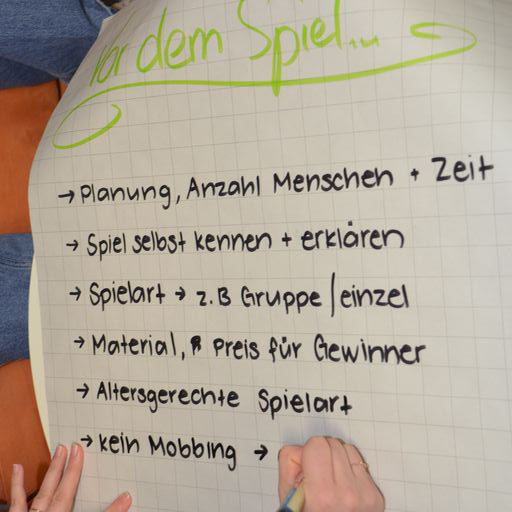 Vor dem Spiel...
→ Planung, Anzahl Menschen + Zeit
→ Spiel selbst kennen + erklären
→ Spielart → z.B Gruppe / einzel
→ Material, Preis für Gewinner
→ Altersgerechte Spielart
→ kein Mobbing →